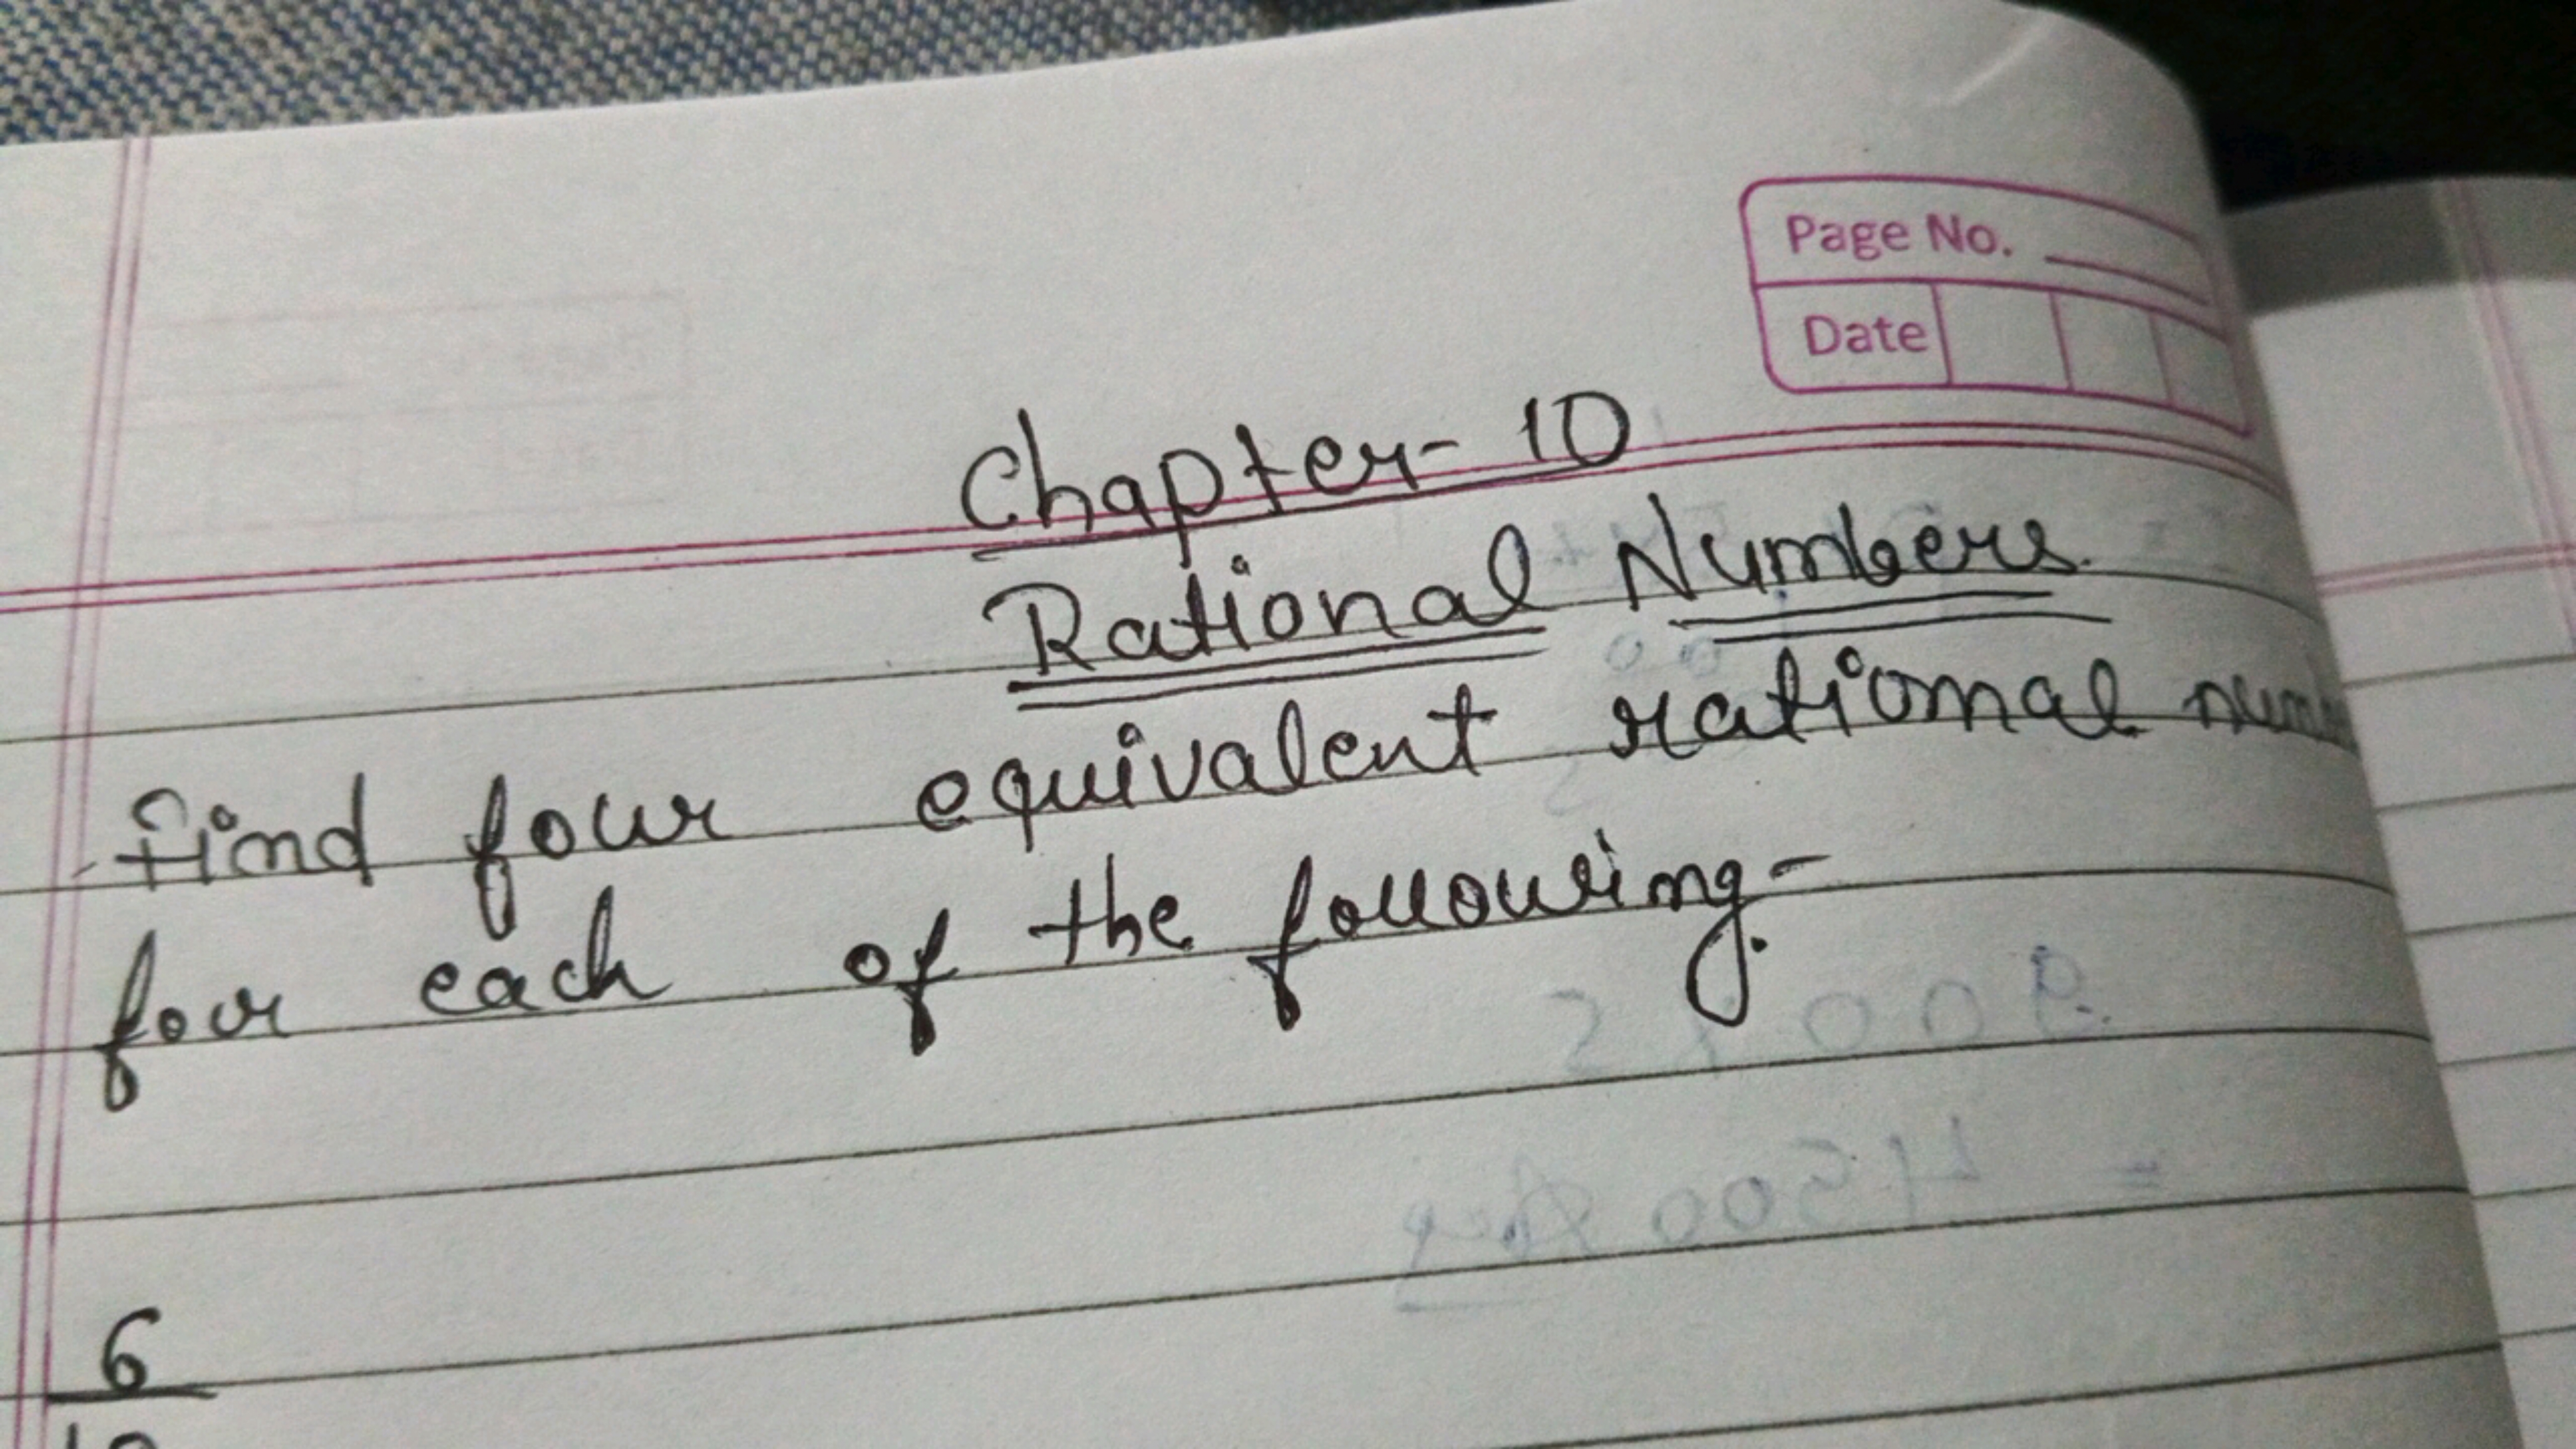 Page No.
Date
Chapter- 10
Rational Numbers
Find four equivalent rational
for each of the following-
6